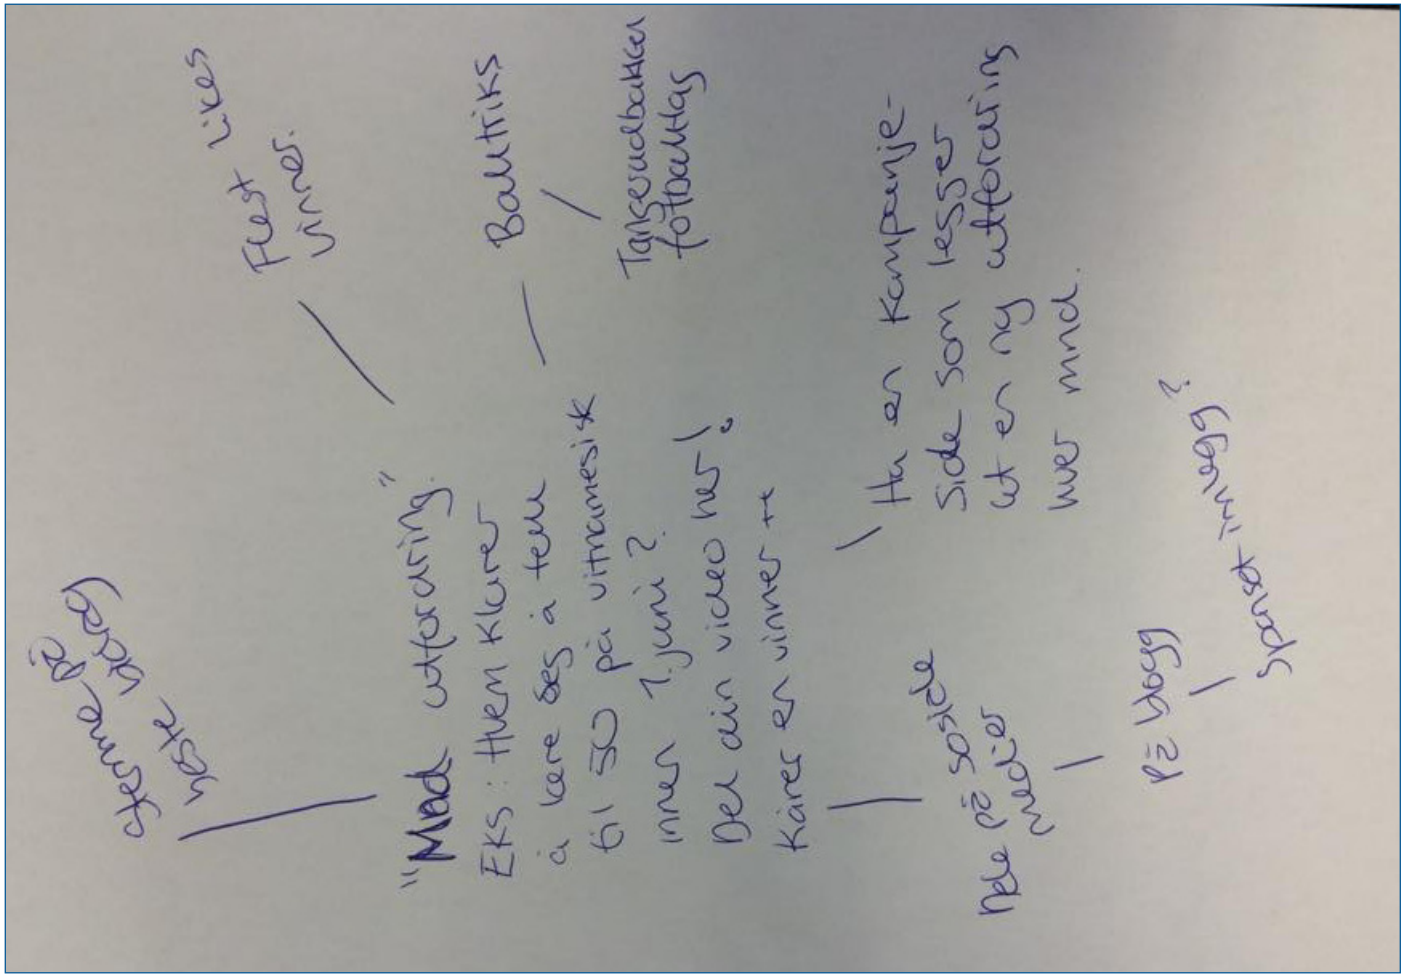 Stemme på
beste bidrag
Flest likes
vinner.
"Mnd utfordring."
EKS: Hvem klarer
å lære seg å telle
til 50 på vitnamesisk
innen 1.juni?
Del din video her!
Kårer en vinner ++
Balltriks
Tangerudbakken
fotballlag
Ha en kampanje-
side som legger
ut en ny utfordring
hver mnd.
Dele på sosiale
medier
På blogg
Sponset innlegg?